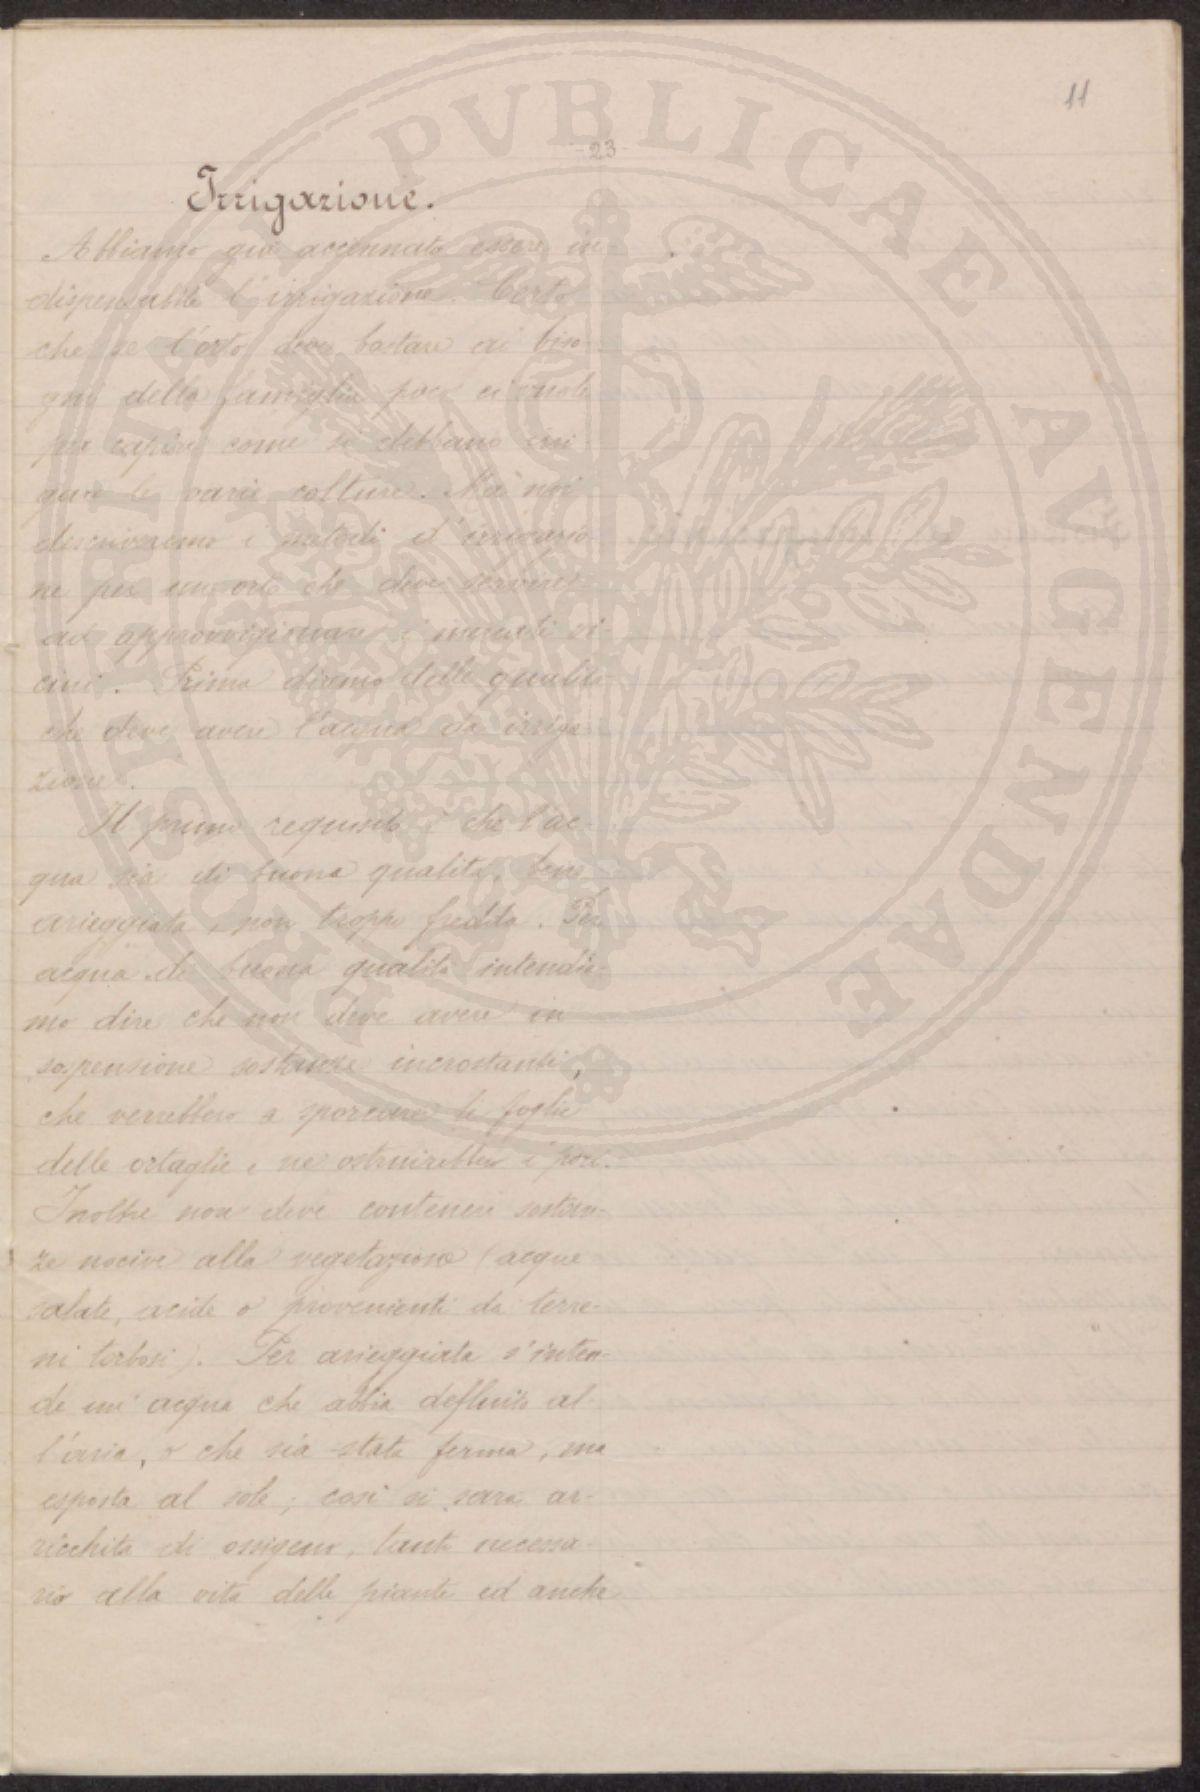 11
23
Irrigazione.
Abbiamo già accennato essere in-
dispensabile l'irrigazione. Certo
che se l'orto deve bastare ai biso-
gni della famiglia poco ci vuole
per capire come si debbano irri-
gare le varie colture. Ma noi
descriveremo i metodi d'irrigazio-
ne per un orto che deve servire
ad approvvigionare i mercati vi-
cini. Prima diremo delle qualità
che deve avere l'acqua da irriga-
zione.
Il primo requisito è che l'ac-
qua sia di buona qualità, bene
arieggiata, non troppo fredda. Per
acqua di buona qualità intendia-
mo dire che non deve avere in
sospensione sostanze incrostanti,
che verrebbero a sporcare le foglie
delle ortaglie e ne ostruirebbero i pori.
Inoltre non deve contenere sostan-
ze nocive alla vegetazione (acque
salate, acide o provenienti da terre-
ni torbosi). Per arieggiata s'inten-
de un'acqua che abbia defluito al-
l'aria, o che sia stata ferma, ma
esposta al sole; così si sarà ar-
ricchita di ossigeno, tanto necessa-
rio alla vita delle piante ed anche
PROSPERITATI PVBLICAE AVGENDAE